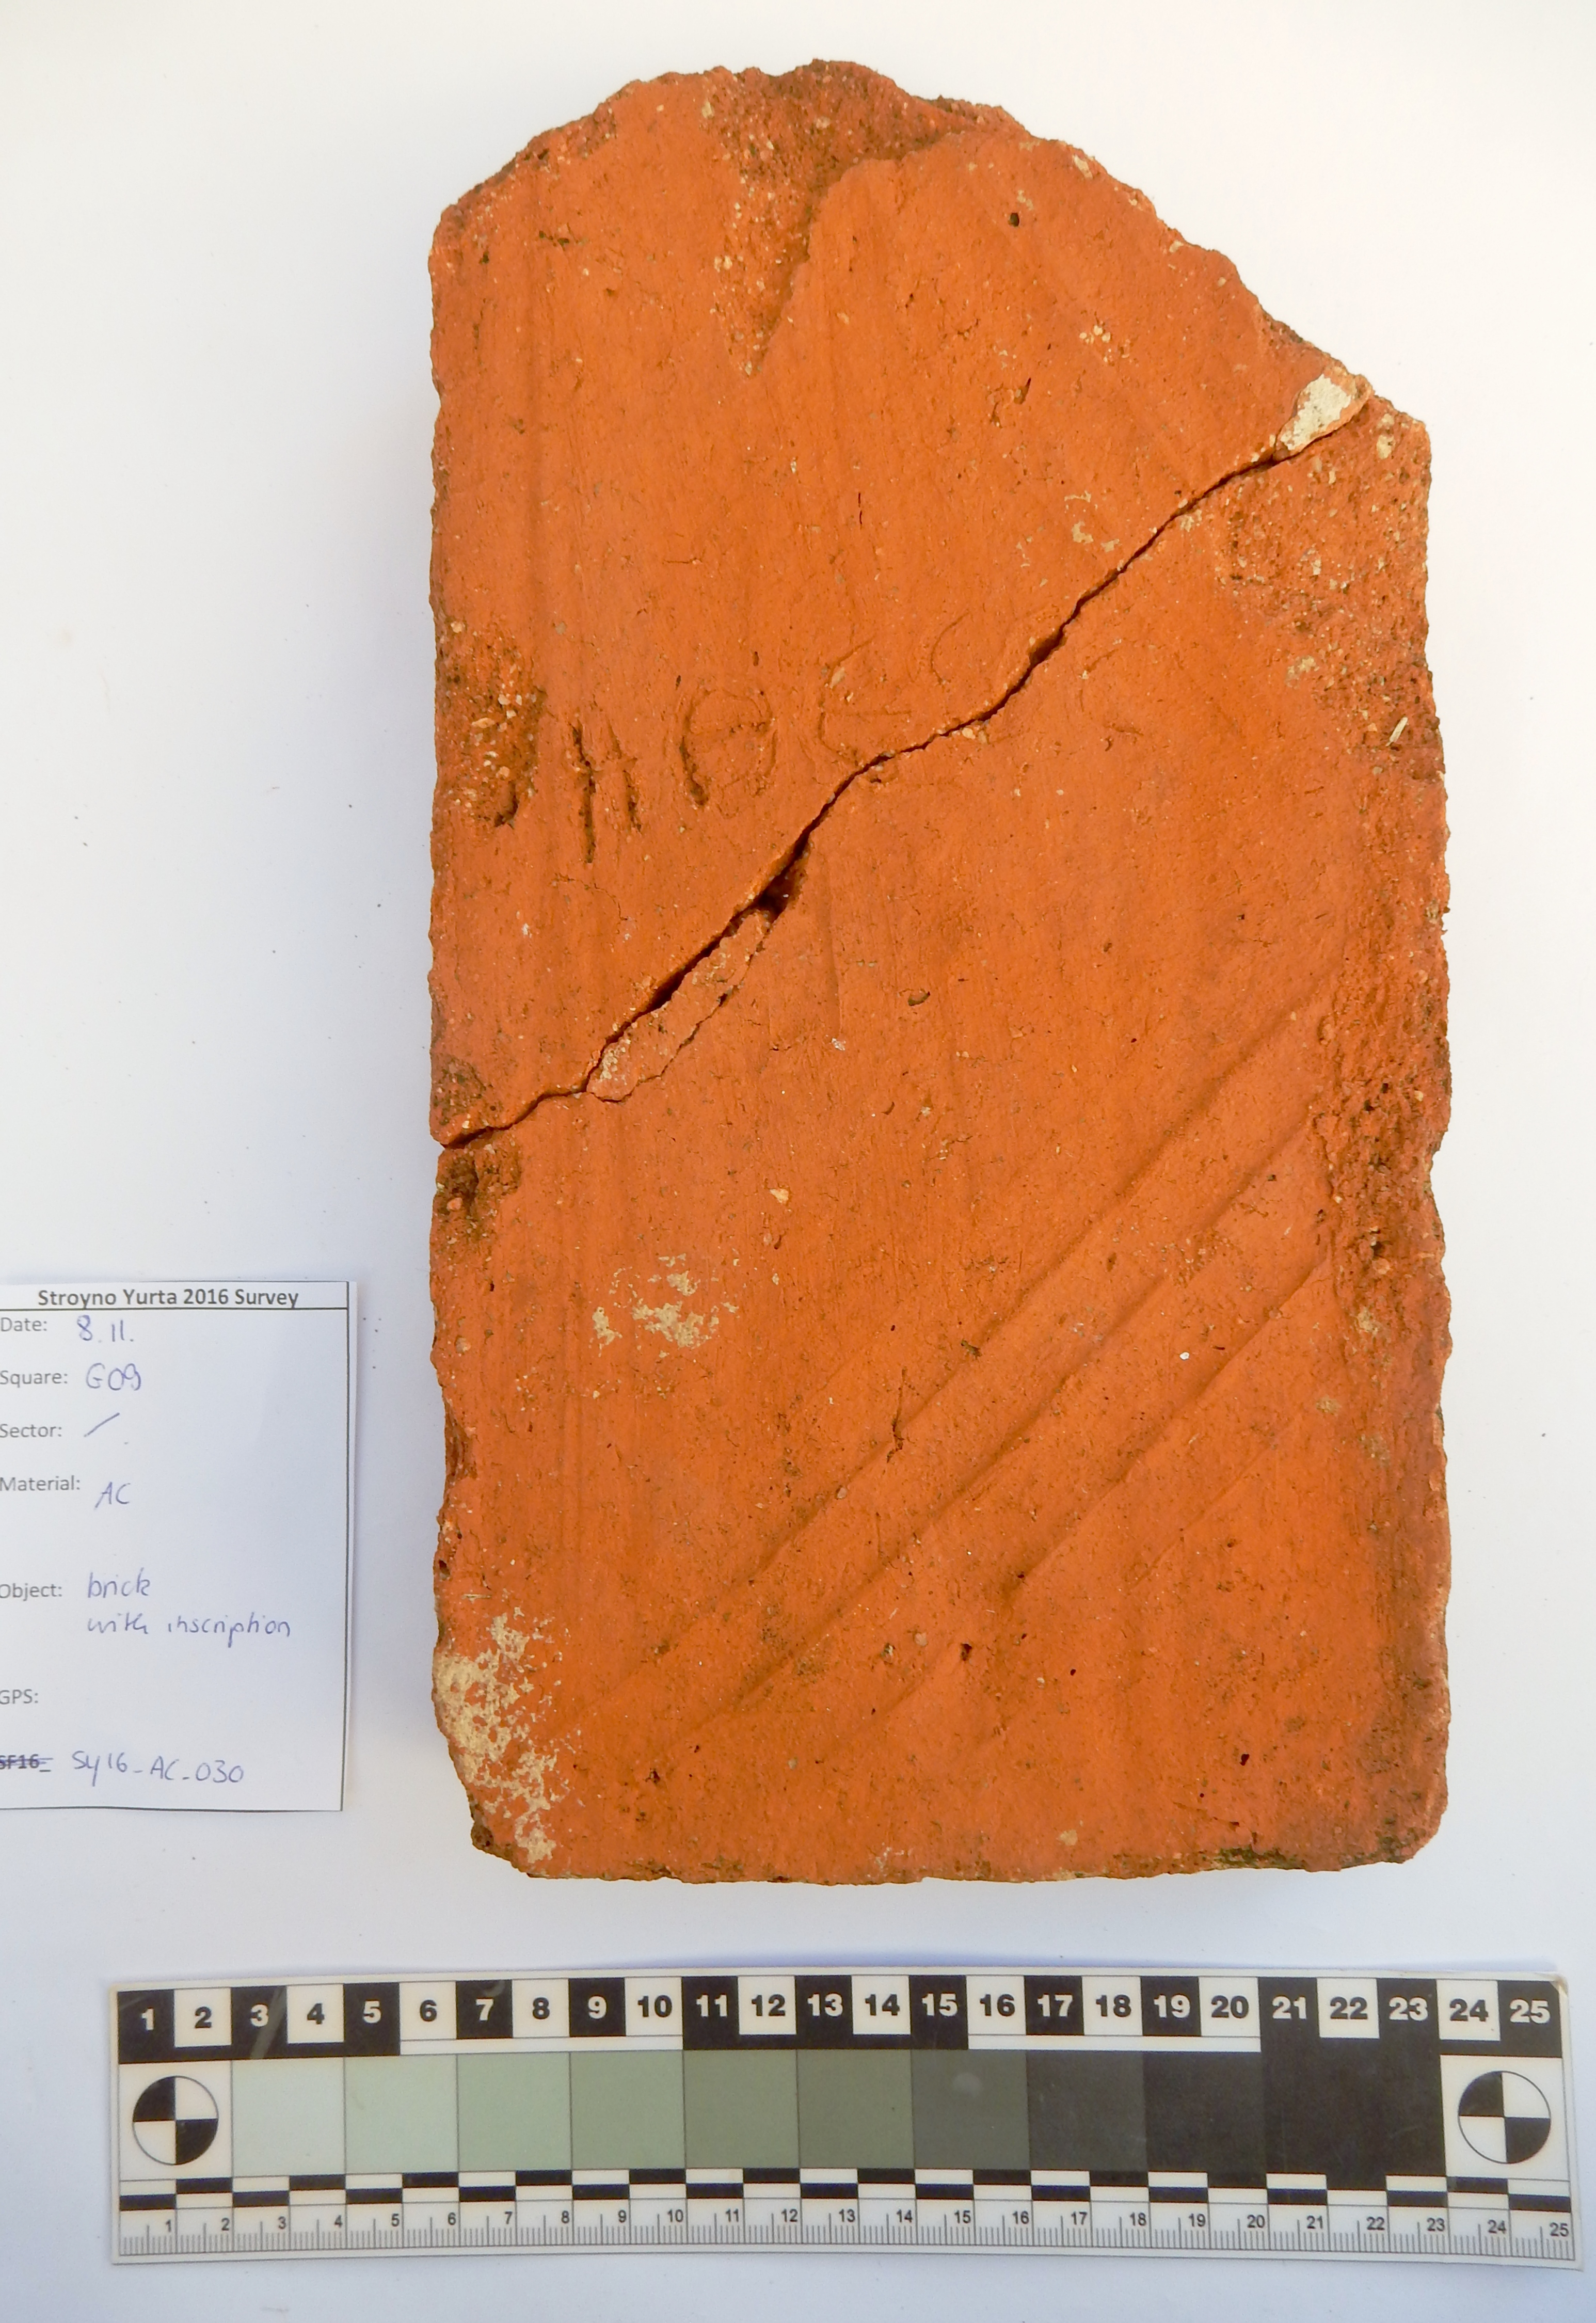 ΗΘΕϹ
Stroyno Yurta 2016 Survey
Date: 8.11.
Square: G09
Sector: /
Material: AC
Object: brick
with inscription
GPS:
SF16- SY16-AC-030
1 2 3 4 5 6 7 8 9 10 11 12 13 14 15 16 17 18 19 20 21 22 23 24 25
1 2 3 4 5 6 7 8 9 10 11 12 13 14 15 16 17 18 19 20 21 22 23 24 25